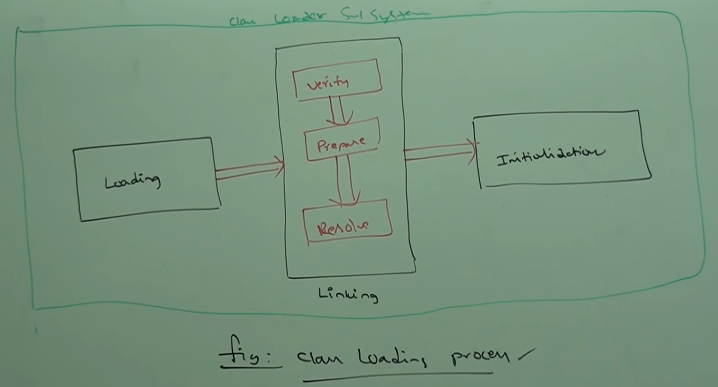 Class Loader Sub System
Loading
Verify
Prepare
Resolve
Linking
Initialization
fig: class Loading process